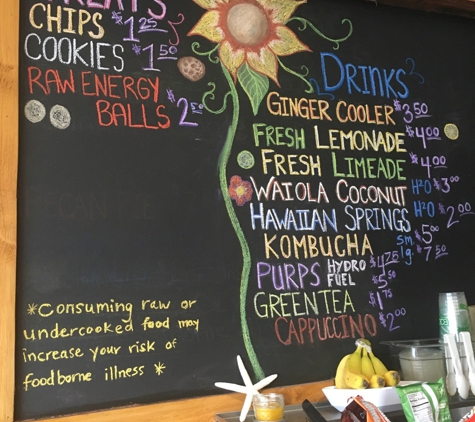 TREATS
CHIPS $1.25
COOKIES $1.50
RAW ENERGY
BALLS $2.50
*Consuming raw or
undercooked food may
increase your risk of
foodborne illness *
DRINKS
GINGER COOLER $3.50
FRESH LEMONADE $4.00
FRESH LIMEADE $4.00
WAIOLA COCONUT H2O $3.00
HAWAIIAN SPRINGS H2O $2.00
KOMBUCHA sm. $5.00
lg. $7.50
PURPS HYDRO $4.25
FUEL $5.50
GREEN TEA $1.75
CAPPUCCINO $2.00